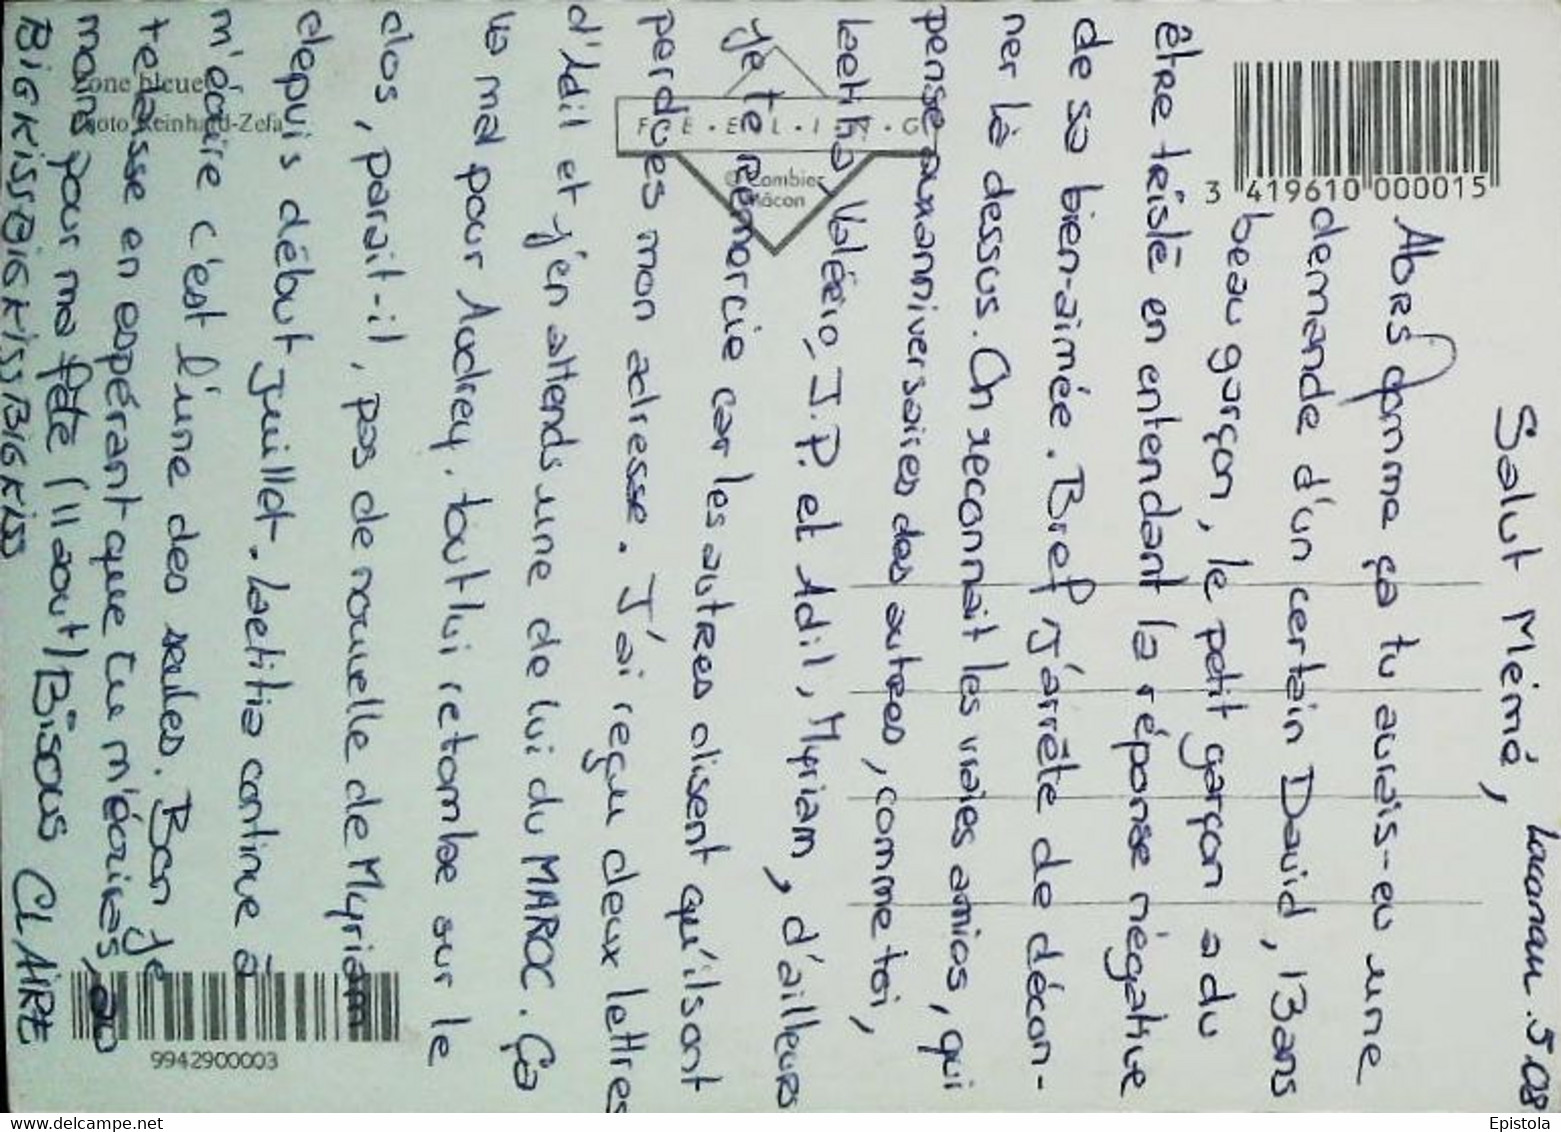 Lacanau. 5.08
Salut Mémé,
Alors comme ça tu aurais-eu une
demande d'un certain David, 13 ans
beau garçon, le petit garçon a du
être triste en entendant la réponse négative
de sa bien-aimée. Bref j'arrête de décon-
ner là dessus. On reconnait les vraies amies, qui
pense aux anniversaires des autres, comme toi,
Laetitia, Valérie, J.P. et Adil, Myriam, d'ailleurs
je te remercie car les autres disent qu'ils ont
perdues mon adresse. J'ai reçu deux lettres
d'Adil et j'en attends une de lui du MAROC. Ça
va mal pour Audrey, tout lui retombe sur le
dos, parait-il, pas de nouvelle de Myriam
depuis début juillet. Laetitia continue à
m'écrire c'est l'une des seules. Bon je
te laisse en espérant que tu m'écrires, au
moins pour ma fête (11 aout) Bisous CLAIRE
BIG KISS BIG KISS BIG KISS
3 419610 000015
FEELING
© Combier
Mâcon
Zone bleue
Photo Reinhard-Zefa
9942900003
Epistola
www.delcampe.net